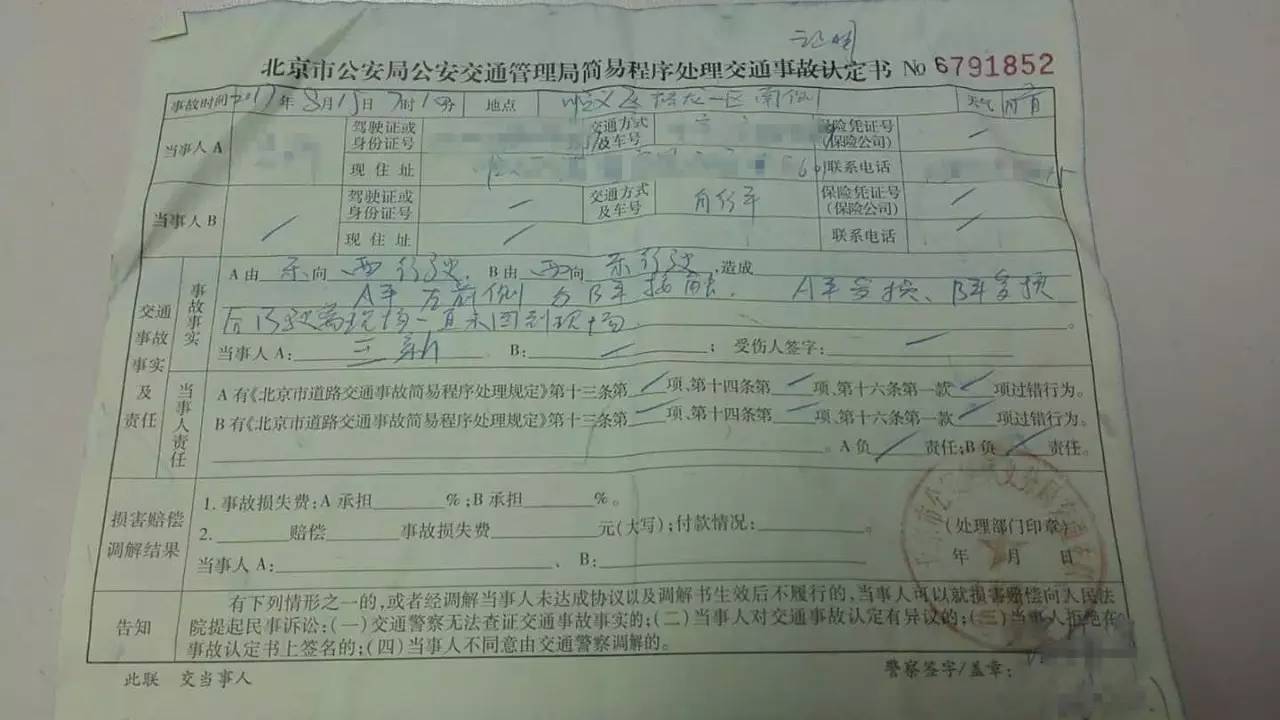 证明
北京市公安局公安交通管理局简易程序处理交通事故认定书 No 6791852
事故时间 2017年8月15日7时1分 地点 顺义区 一区南侧 天气 晴
当事人A 驾驶证或身份证号 交通方式及车号 保险凭证号(保险公司) /
现住址 联系电话
当事人B / 驾驶证或身份证号 / 交通方式及车号 自行车 保险凭证号(保险公司) /
现住址 / 联系电话 /
交通事故事实及责任
事故事实
A由 东 向 西行驶, B由 西 向 东行驶 ,造成
A车左前侧与B车接触, A车受损、B车受损
后B驶离现场一直未回到现场。
当事人A: B: / ; 受伤人签字: /
当事人责任
A有《北京市道路交通事故简易程序处理规定》第十三条第 / 项、第十四条第 / 项、第十六条第一款 / 项过错行为。
B有《北京市道路交通事故简易程序处理规定》第十三条第 / 项、第十四条第 / 项、第十六条第一款 / 项过错行为。
。A负 / 责任;B负 / 责任。
损害赔偿调解结果
1. 事故损失费:A承担 %;B承担 %。
2. 赔偿 事故损失费 元(大写);付款情况: 。
(处理部门印章)
年 月 日
当事人A: 、B:
告知
有下列情形之一的,或者经调解当事人未达成协议以及调解书生效后不履行的,当事人可以就损害赔偿向人民法
院提起民事诉讼:(一)交通警察无法查证交通事故事实的;(二)当事人对交通事故认定有异议的;(三)当事人拒绝在
事故认定书上签名的;(四)当事人不同意由交通警察调解的。
此联 交当事人
警察签字/盖章: